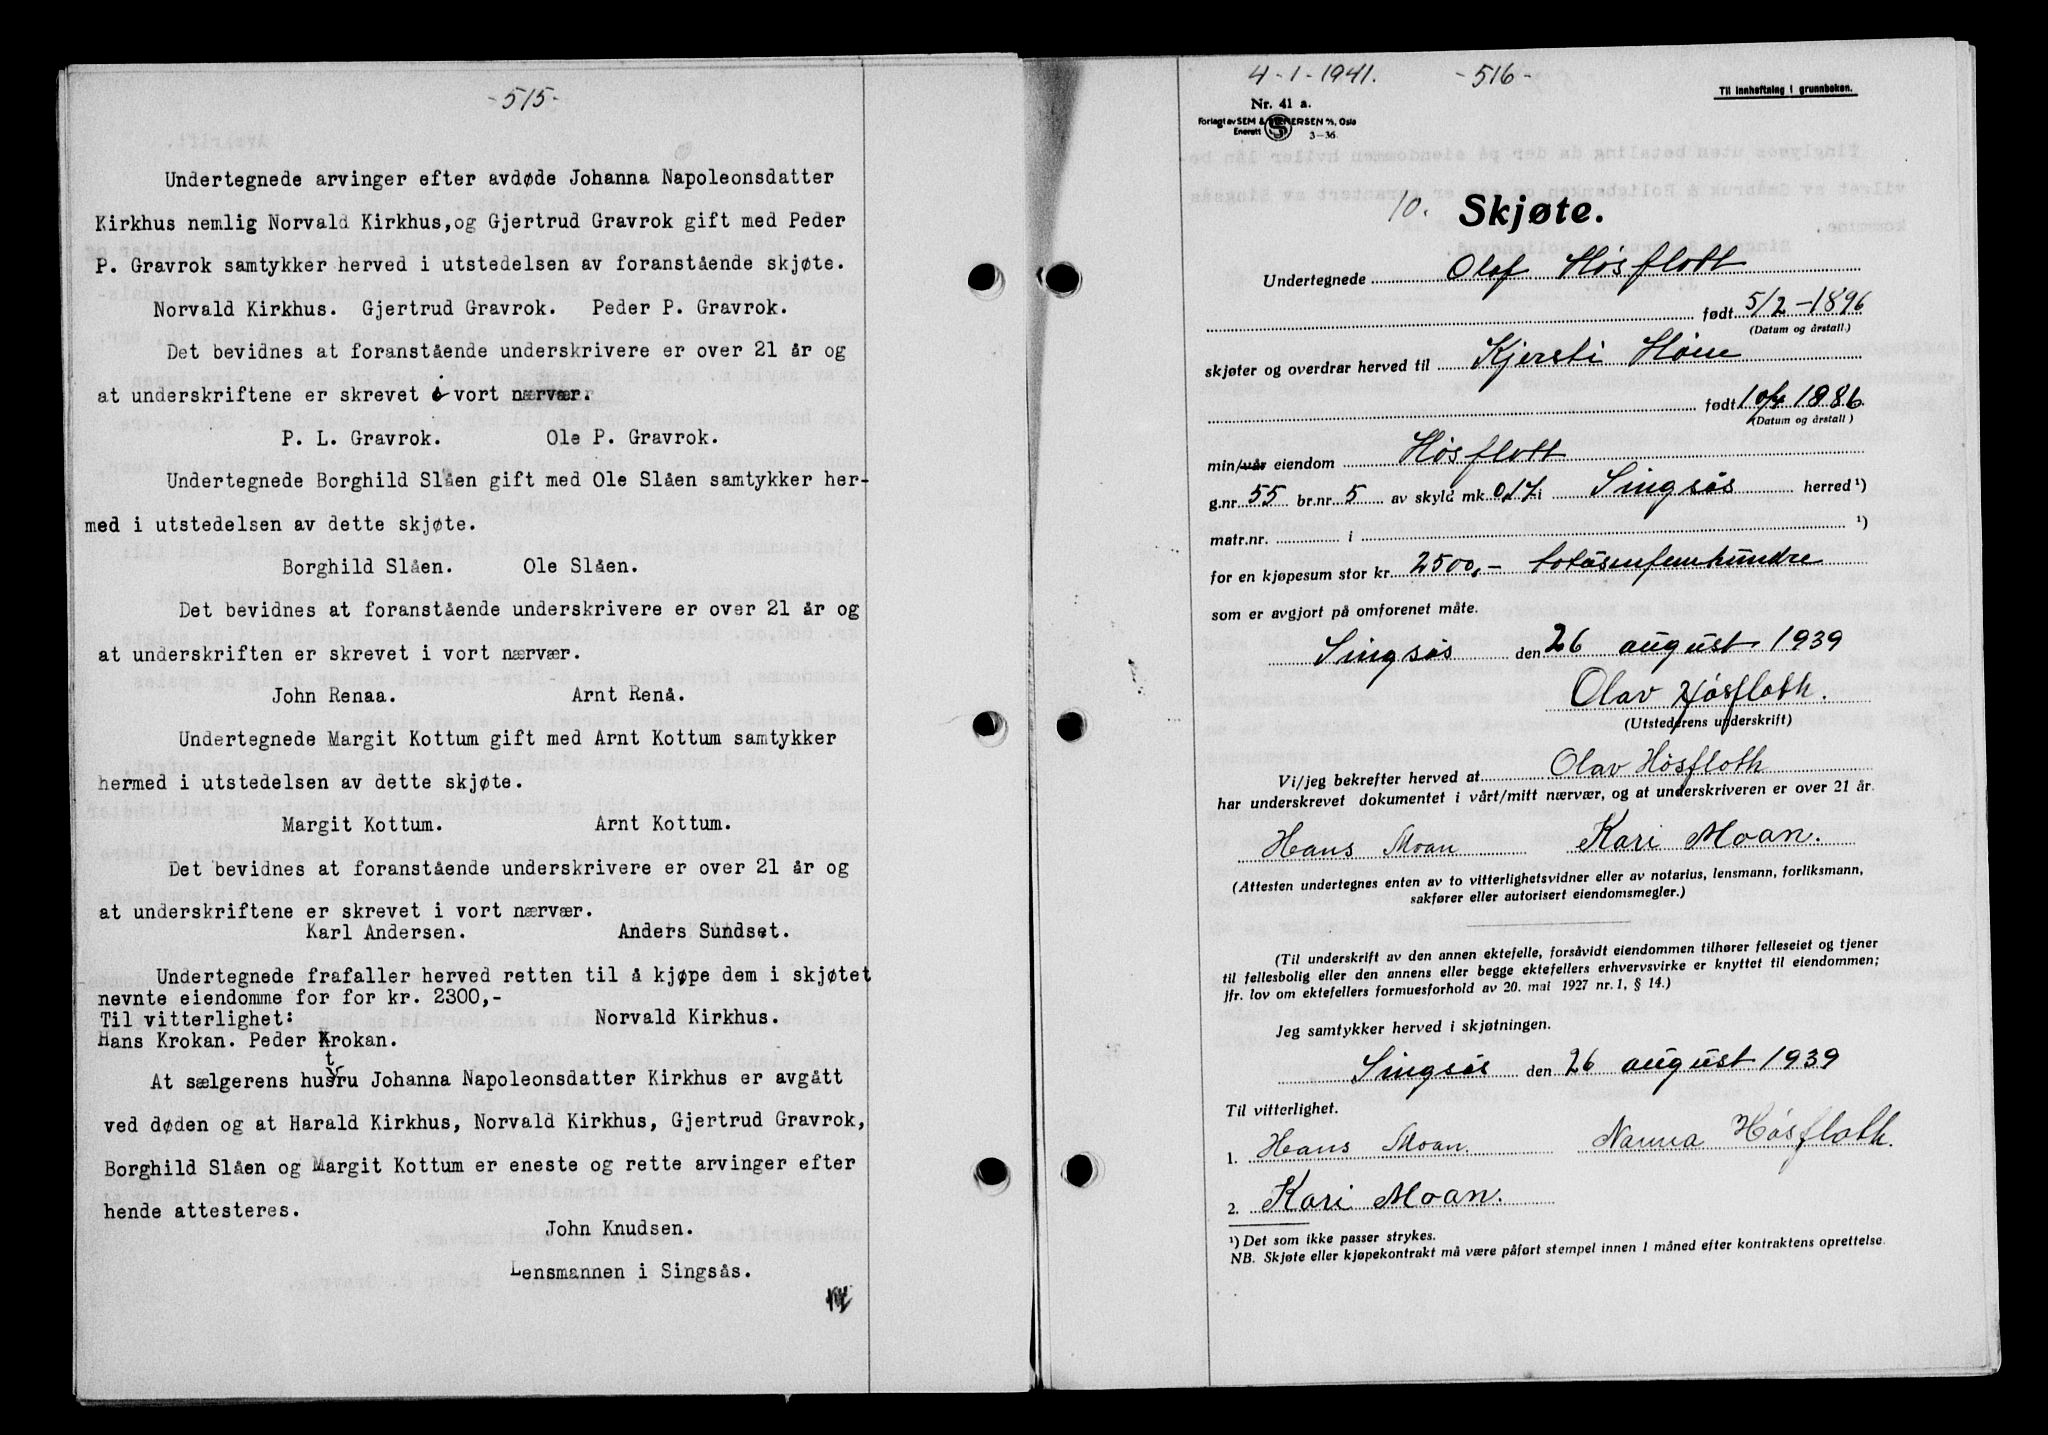 -515-
Undertegnede arvinger efter avdøde Johanna Napoleonsdatter
Kirkhus nemlig Norvald Kirkhus,og Gjertrud Gravrok gift med Peder
P. Gravrok samtykker herved i utstedelsen av foranstående skjøte.
Norvald Kirkhus. Gjertrud Gravrok. Peder P. Gravrok.
Det bevidnes at foranstående underskrivere er over 21 år og
at underskriftene er skrevet i vort nærvær.
P. L. Gravrok. Ole P. Gravrok.
Undertegnede Borghild Slåen gift med Ole Slåen samtykker her-
med i utstedelsen av dette skjøte.
Borghild Slåen. Ole Slåen.
Det bevidnes at foranstående underskrivere er over 21 år og
at underskriften er skrevet i vort nærvær.
John Renaa. Arnt Renå.
Undertegnede Margit Kottum gift med Arnt Kottum samtykker
hermed i utstedelsen av dette skjøte.
Margit Kottum. Arnt Kottum.
Det bevidnes at foranstående underskrivere er over 21 år og
at underskriftene er skrevet i vort nærvær.
Karl Andersen. Anders Sundset.
Undertegnede frafaller herved retten til å kjøpe dem i skjøtet
nevnte eiendomme for for kr. 2300,-
Til vitterlighet: Norvald Kirkhus.
Hans Krokan. Peder Krokan.
At sælgerens hustru Johanna Napoleonsdatter Kirkhus er avgått
ved døden og at Harald Kirkhus, Norvald Kirkhus, Gjertrud Gravrok,
Borghild Slåen og Margit Kottum er eneste og rette arvinger efter
hende attesteres.
John Knudsen.
Lensmannen i Singsås.
4-1-1941. -516-
Til innheftning i grunnboken.
Nr. 41 a.
Forlagt av SEM & STENERSEN A/S, Oslo
Enerett S 3-36
10. Skjøte.
Undertegnede Olaf Høsflott
født 5/2-1896
(Datum og årstall.)
skjøter og overdrar herved til Kjersti Höne
født 10/4 1886
(Datum og årstall)
min/vår eiendom Høsflott
g.nr 55 br.nr 5 av skyld mk. 0,17 i Singsås herred ¹)
matr.nr. i ¹)
for en kjøpesum stor kr 2500,- totusenfemhundre
som er avgjort på omforenet måte.
Singsås den 26 august 1939
Olav Høsfloth.
(Utstederens underskrift)
Vi/jeg bekrefter herved at Olav Høsfloth
har underskrevet dokumentet i vårt/mitt nærvær, og at underskriveren er over 21 år.
Hans Moan Kari Moan.
(Attesten undertegnes enten av to vitterlighetsvidner eller av notarius, lensmann, forliksmann,
sakfører eller autorisert eiendomsmegler.)
(Til underskrift av den annen ektefelle, forsåvidt eiendommen tilhører felleseiet og tjener
til fellesbolig eller den annens eller begge ektefellers erhvervsvirke er knyttet til eiendommen;
jfr. lov om ektefellers formuesforhold av 20. mai 1927 nr. 1, § 14.)
Jeg samtykker herved i skjøtningen.
Singsås den 26 august 1939
Til vitterlighet.
1. Hans Moan. Nanna Høsfloth.
2. Kari Moan.
¹) Det som ikke passer strykes.
NB. Skjøte eller kjøpekontrakt må være påført stempel innen 1 måned efter kontraktens oprettelse.